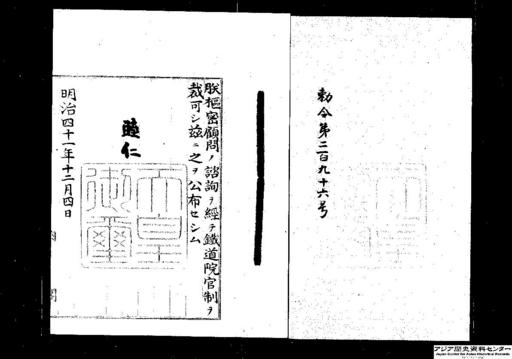 勅令第二百九十六号
朕樞密顧問ノ諮詢ヲ經テ鐵道院官制ヲ
裁可シ玆ニ之ヲ公布セシム
睦仁
天皇
御璽
明治四十一年十二月四日
内閣
アジア歴史資料センター
Japan Center for Asian Historical Records